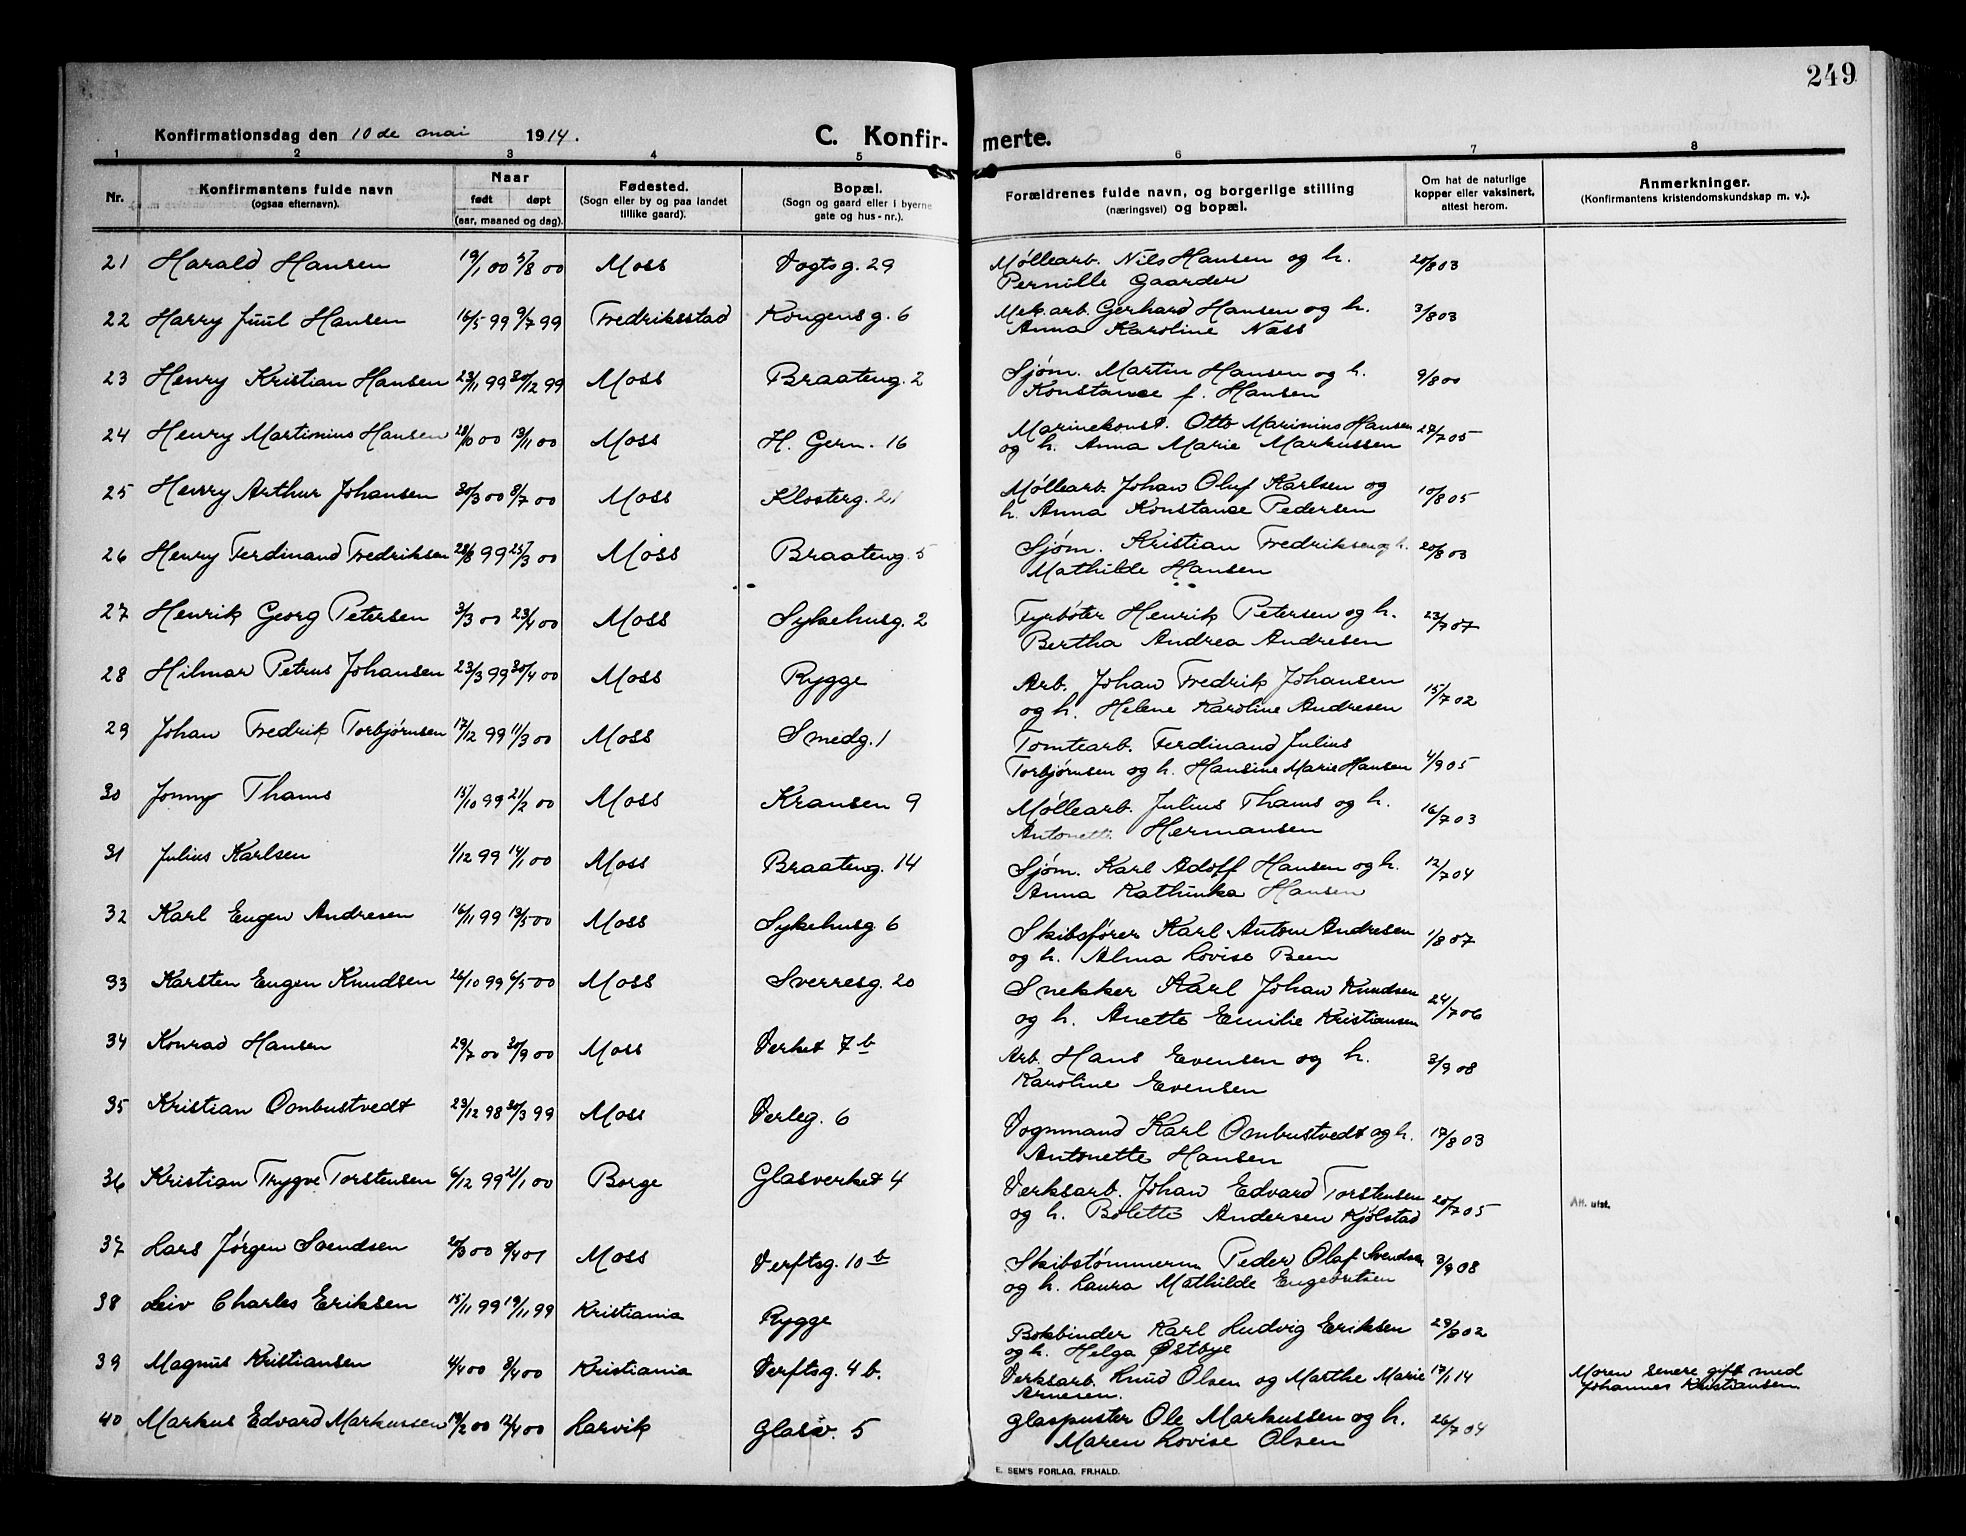 249
Konfirmationsdag den 10 de mai 1914.
C. Konfir-merte.
1 2 3 4 5 6 7 8
Nr.
Konfirmantens fulde navn
(ogsaa efternavn).
Naar
født døpt
(aar, maaned og dag).
Fødested.
(Sogn eller by og paa landet
tillike gaard).
Bopæl.
(Sogn og gaard eller i byerne
gate og hus-nr.).
Forældrenes fulde navn, og borgerlige stilling
(næringsvei) og bopæl.
Om hat de naturlige
kopper eller vaksinert,
attest herom.
Anmerkninger.
(Konfirmantens kristendomskundskap m. v.).
21 Harald Hansen 19/1 00 5/8 00 Moss Vogtsg. 29 Møllearb. Nils Hansen og h. 20/8 03
Pernille Gaarder
22 Harry Juul Hansen 16/5 99 9/7 99 Fredriksstad Kongensg. 6 Mek. arb. Gerhard Hansen og h. 3/8 03
Anna Karoline Næss
23 Henry Kristian Hansen 23/11 99 30/12 99 Moss Braateng. 2 Sjøm. Martin Hansen og h. 9/8 00
Konstance f. Hansen
24 Henry Martinius Hansen 28/10 00 13/11 00 Moss H. Gern. 16 Marinekonst. Otto Marinius Hansen 27/7 05
og h. Anna Marie Markussen
25 Henry Arthur Johansen 30/3 00 8/7 00 Moss Klosterg. 21 Møllearb. Johan Oluf Karlsen og 10/8 05
h. Anna Konstance Pedersen
26 Henry Ferdinand Fredriksen 28/8 99 25/3 00 Moss Braateng. 5 Sjøm. Kristian Fredriksen og h. 20/8 03
Mathilde Hansen
27 Henrik Georg Petersen 3/3 00 23/4 00 Moss Sykehusg. 2 Fyrbøter Henrik Petersen og h. 23/7 07
Bertha Andrea Andresen
28 Hilmar Petrus Johansen 23/3 99 30/4 00 Moss Rygge Arb. Johan Fredrik Johansen 15/7 02
og h. Helene Karoline Andresen
29 Johan Fredrik Torbjørnsen 17/12 99 11/3 00 Moss Smedg. 1 Tomtearb. Ferdinand Julius
Torbjørnsen og h. Hansine Marie Hansen 4/9 05
30 Jonny Thams 15/10 99 21/2 00 Moss Kransen 9 Møllearb. Julius Thams og h. 16/7 03
Antonette Hermansen
31 Julius Karlsen 1/12 99 14/1 00 Moss Braateng. 14 Sjøm. Karl Adolf Hansen og h. 12/7 04
Anna Kathinka Hansen
32 Karl Eugen Andresen 16/11 99 13/5 00 Moss Sykehusg. 6 Skibsfører Karl Anton Andresen 1/8 07
og h. Alma Lovise Been
33 Karsten Eugen Knudsen 26/10 99 6/5 00 Moss Sverresg. 20 Snekker Karl Johan Knudsen 24/7 06
og h. Anette Emilie Kristiansen
34 Konrad Hansen 29/7 00 30/9 00 Moss Verket 7 b Arb. Hans Evensen og h. 3/9 08
Karoline Evensen
35 Kristian Ombustvedt 23/12 98 30/3 99 Moss Verleg. 6 Vognmand Karl Ombustvedt og h. 17/8 03
Antonette Hansen
36 Kristian Trygve Torstensen 6/12 99 21/1 00 Borge Glasverket 4 Verksarb. Johan Edvard Torstensen 20/7 05 Att. utst.
og h. Bolette Andersen Kjølstad
37 Lars Jørgen Svendsen 20/3 00 9/4 01 Moss Verftsg. 10 b Skibstømmerm. Peder Olaf Svendsen 3/9 08
og h. Laura Mathilde Engebretsen
38 Leiv Charles Eriksen 15/11 99 19/11 99 Kristiania Rygge Bokbinder Karl Ludvig Eriksen 29/8 02
og h. Helga Østbye
39 Magnus Kristiansen 4/4 00 8/4 00 Kristiania Verftsg. 4 b. Verksarb. Knud Olsen og Marthe Marie 17/1 14 Moren senere gift med
Arnesen. Johannes Kristiansen
40 Markus Edvard Markussen 19/2 00 12/4 00 Larvik Glasv. 5 Glaspuster Ole Markussen og h. 26/7 04
Maren Lovise Olsen
E. SEM'S FORLAG, FR.HALD.